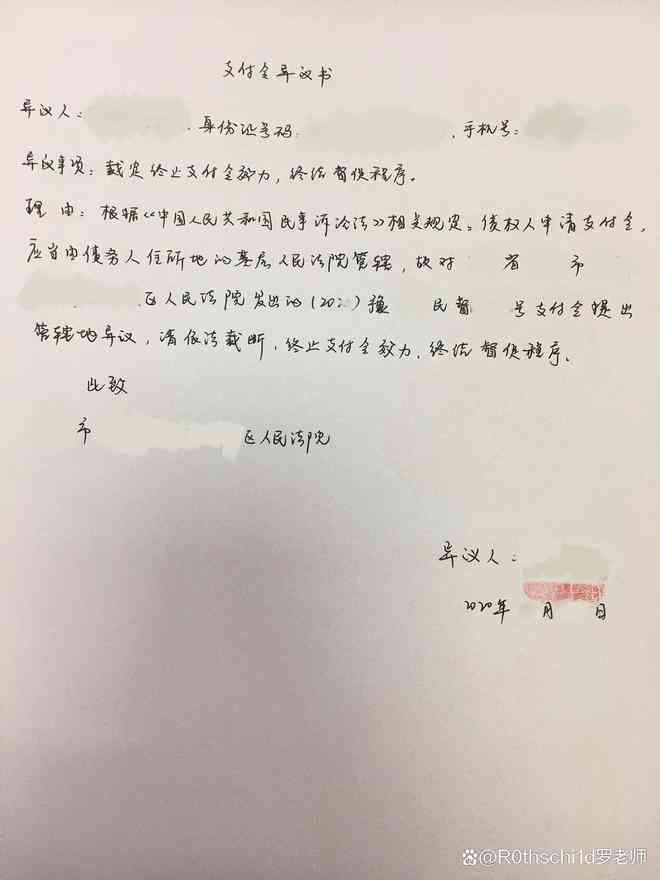 支付令异议书
异议人： ，身份证号码： ，手机号：
异议事项：裁定终止支付令效力，终结督促程序。
理 由：根据《中国人民共和国民事诉讼法》相关规定。债权人申请支付令，
应当由债务人住所地的基层人民法院管辖，故对 省 市
区人民法院发出的（20 ） 民督 号支付令提出
管辖地异议，请依法裁断，终止支付令效力，终结督促程序。
此致
市 区人民法院
异议人：
2020年 月 日
@R0thschi1d罗老师